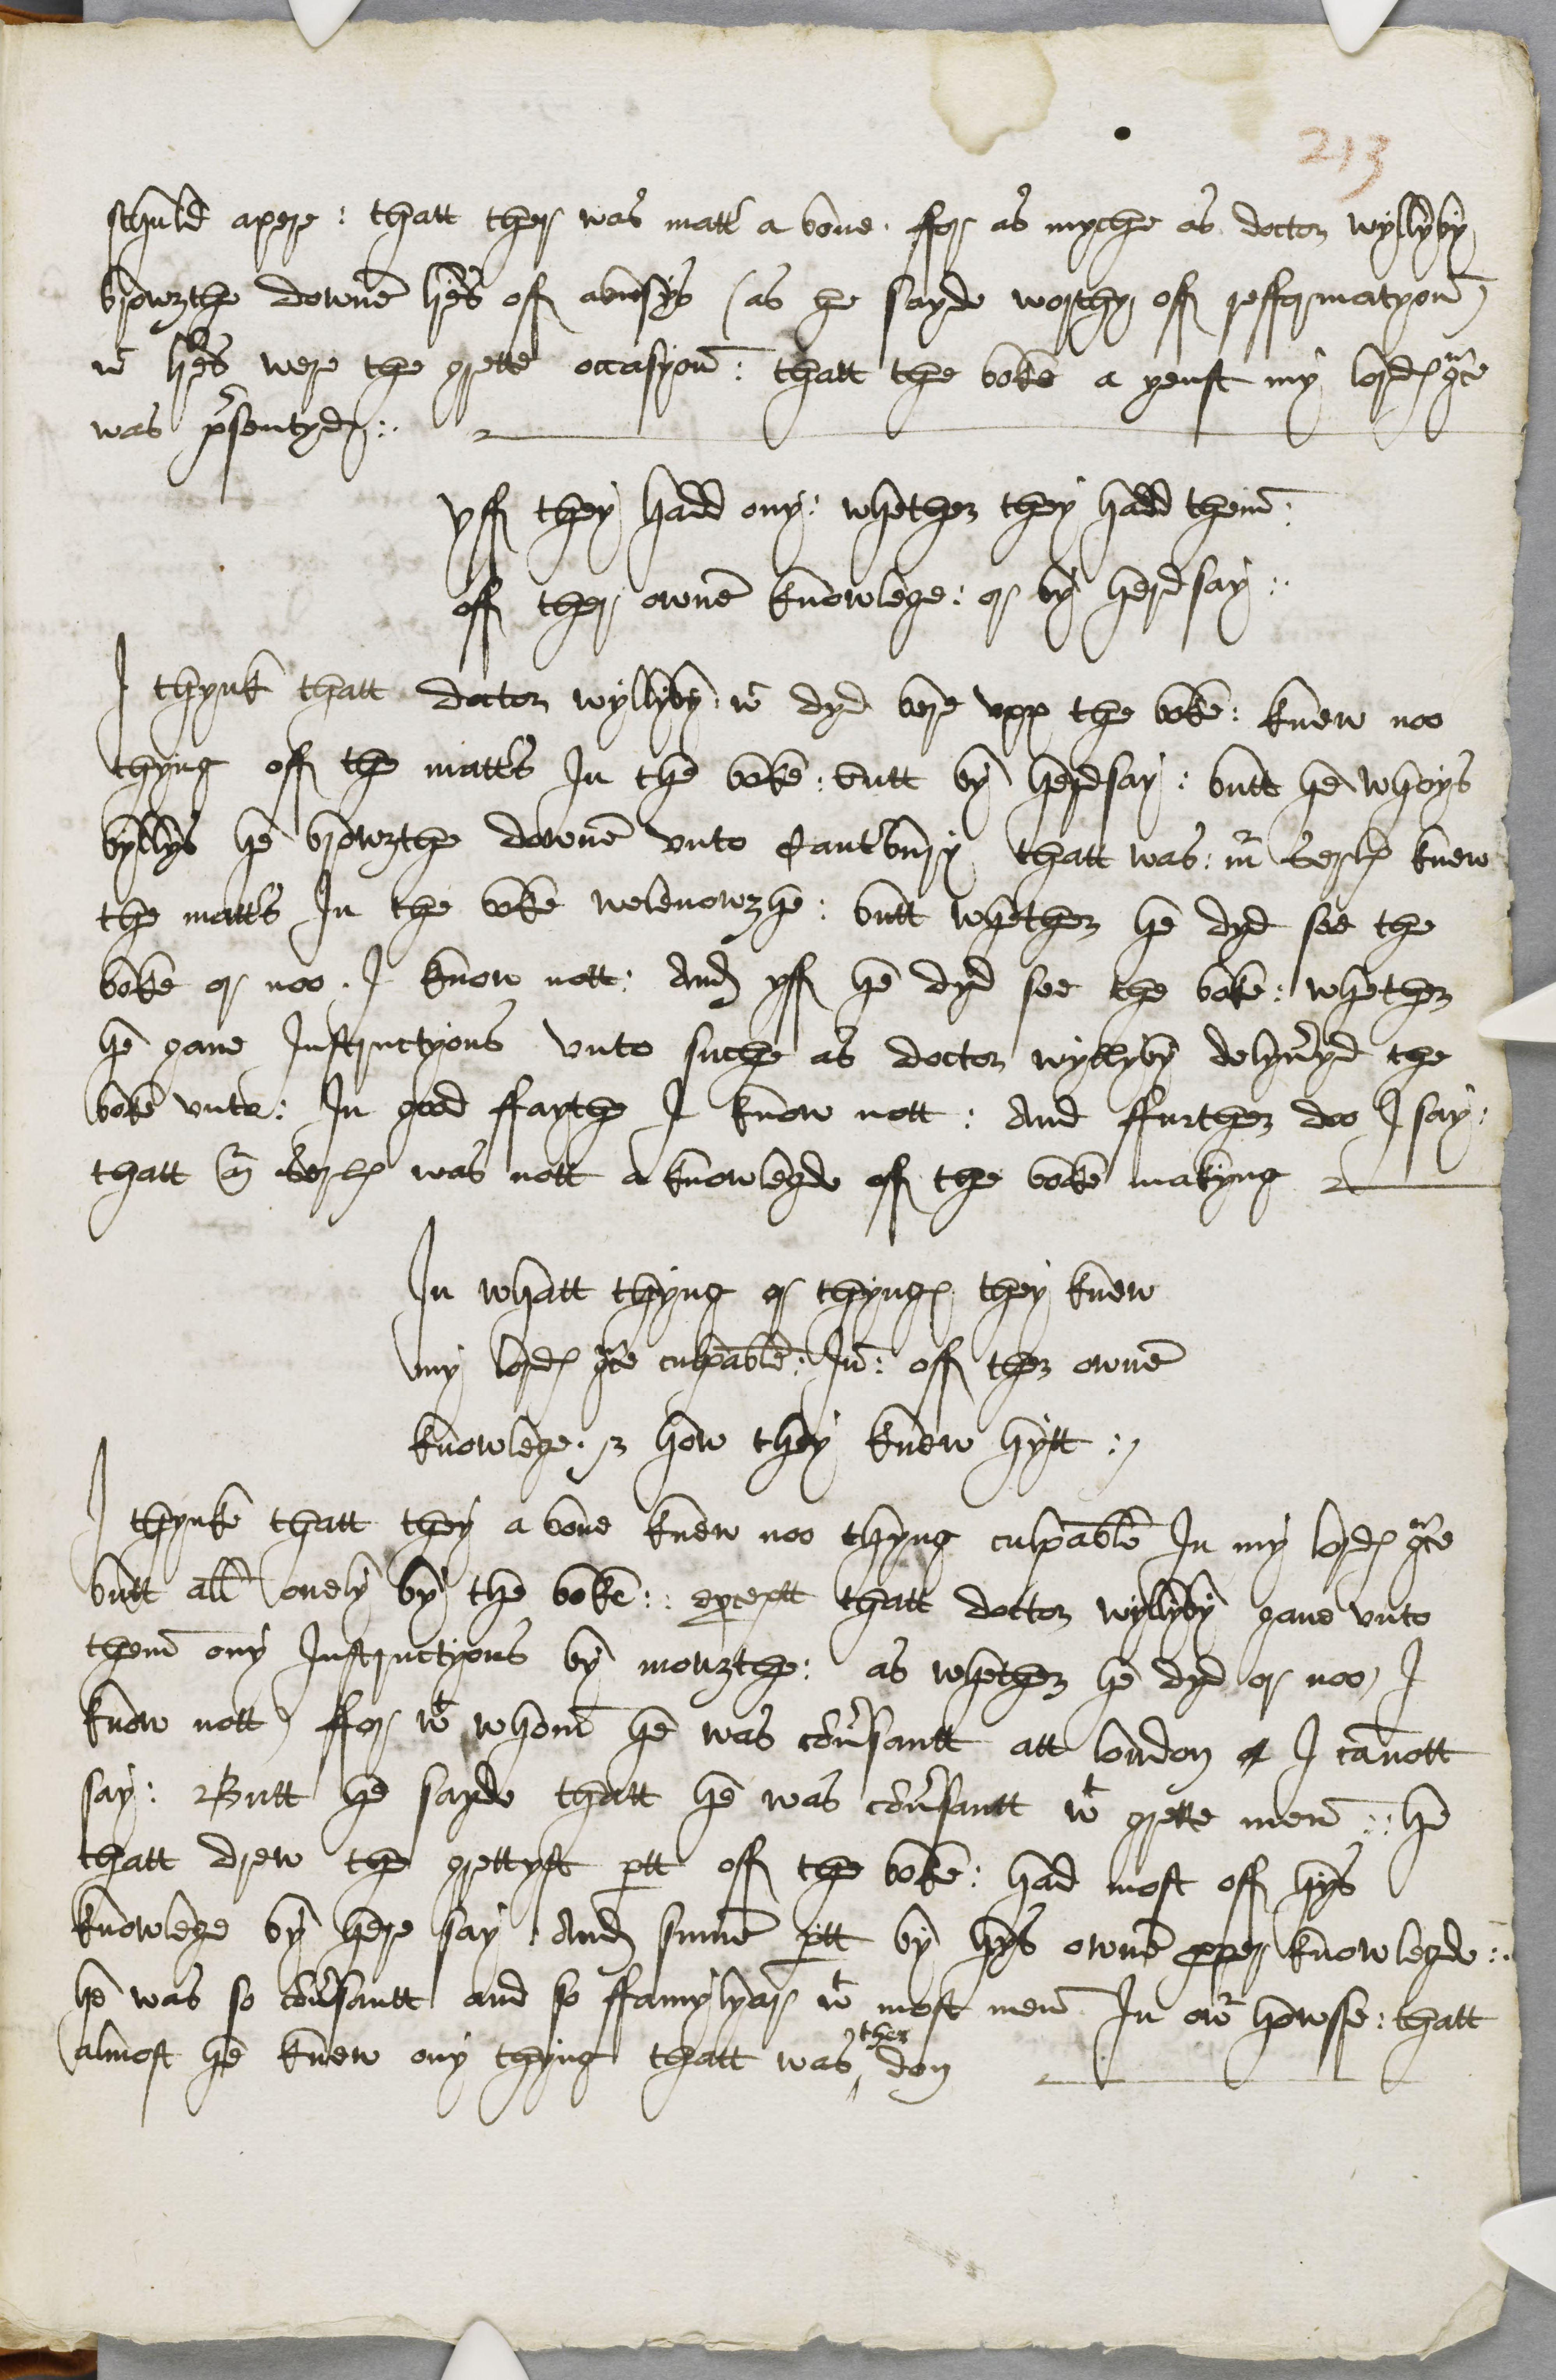 213
schuld apere : thatt ther was matt' a bove . ffor as myche as doctor wyllyby
browzthe downe l'res off abusys (as he sayde worthy off refformatyon)
wc l'res were the grette occasyon : thatt the boke a yenst my lordes gr'ce
was p'sentyd :.
yff they hadd ony : whether they hadd them :
off ther owne knowlege : or by herdsay :.
I thynk thatt doctor wyllyby : wc dyd bere upp the boke : knew noo
thyng off the matt's In the boke : butt by herdsay : butt he whoys
byllys he browzthe downe unto Cant'bury thatt was : mr Serles knew
the matt's In the boke welenowzhe : butt whether he dyd see the
boke or noo . I know nott : And yff he dyd see the boke : whether
he gave Instructyons unto suche as doctor wyllyby delyv'yd the
boke unto : In good ffaythe I know nott : And ffurther doo I say :
thatt mr Serles was nott a knowlegde off the boke makyng
In whatt thyng or thynges they knew
my lordes gr'ce culpable : In : off ther owne
knowlege . & how they knew hytt :
I thynke thatt they a bove knew noo thyng culpable In my lordes gr'ce
butt all onely by the boke :. exceptt thatt doctor wyllyby gave unto
them ony Instructyons by mowzthe : as whether he dyd or noo I
know nott ) ffor wt whom he was cov'santt att london I canott
say : Butt he sayde thatt he was cov'santt wt grette men :. he
thatt drew the grettyst ptt off the boke : had most off hys
knowlege by here say And summe ptt by hys owne pper knowlegde :.
he was so cov'santt and so ffamylyar wt most men In owr howsse : thatt
almost he knew ony thyng thatt was ther don